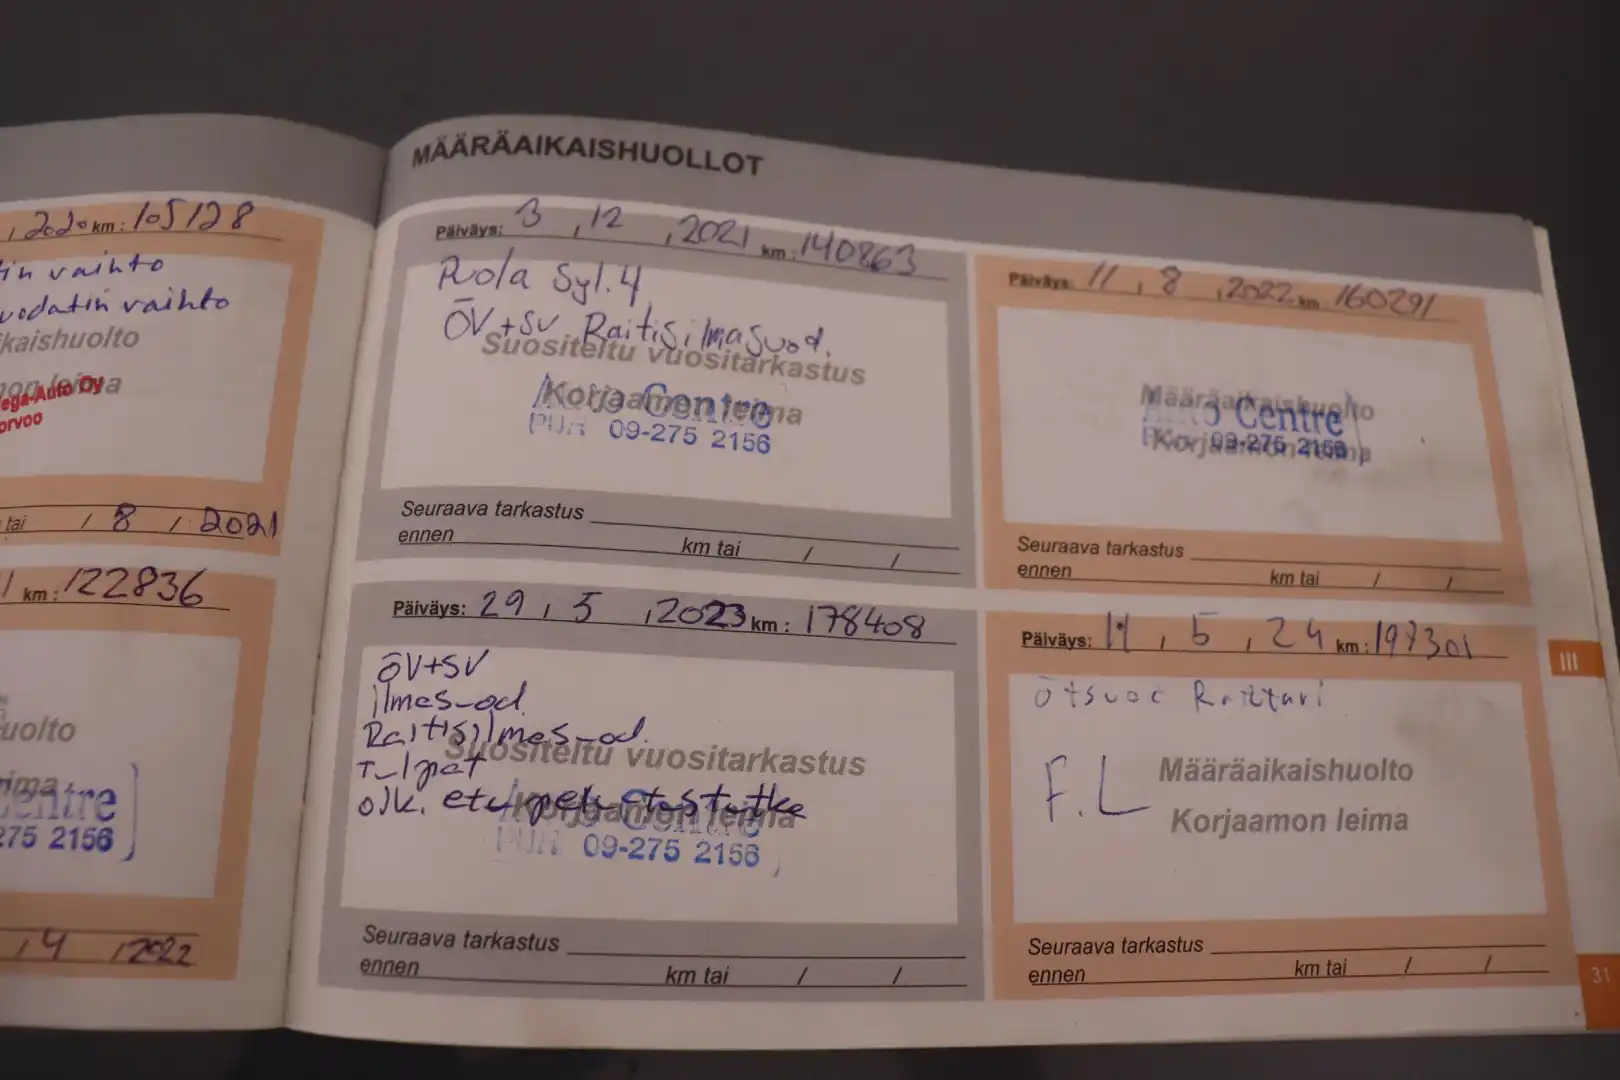 , 2020 km: 105128
tin vaihto
vodatin vaihto
kaishuolto
ega-Auto Oy
orvoo
tai / 8 / 2021
km: 122836
uolto
entre
275 2156
, 4 , 2022
MÄÄRÄAIKAISHUOLLOT
Päiväys: 3 , 12 , 2021 km: 140863
Puola Syl. 4
ÖV+SV Raitisilmasuod.
Suositeltu vuositarkastus
Korjaamon leima
Centre
09-275 2156
Seuraava tarkastus
ennen km tai / /
Päiväys: 11 , 8 , 2022 km: 160291
Määräaikaishuolto
Centre
Korjaamon leima
09-275 2156
Seuraava tarkastus
ennen km tai / /
Päiväys: 29 , 5 , 2023 km: 178408
ÖV+SV
ilmas-od.
Raitisilmas-od.
Suositeltu vuositarkastus
T-lpat
oik. etu
Korjaamon leima
09-275 2156
Seuraava tarkastus
ennen km tai / /
Päiväys: 11 , 5 , 24 km: 197301
F.L
Määräaikaishuolto
Korjaamon leima
Seuraava tarkastus
ennen km tai / /
III
31